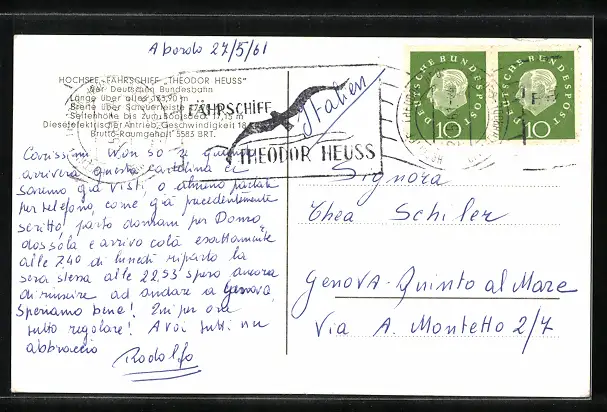 A bordo 27/5/61
HOCHSEE-FÄHRSCHIFF "THEODOR HEUSS"
der Deutschen Bundesbahn
Länge über alles 135,90 m
Breite über Scheuerleiste
Seitenhöhe bis zum Bootsdeck 17,15 m
Dieselelektrischer Antrieb, Geschwindigkeit
Brutto-Raumgehalt 5583 BRT.
FÄHRSCHIFF
THEODOR HEUSS
Italien
DEUTSCHE BUNDESPOST
10
DEUTSCHE BUNDESPOST
10
Carissimi Non so se quando
arriverà questa cartolina ci
saremo già visti o almeno parlati
per telefono, come già precedentemente
scritto, parto domani per Domo
dossola e arrivo colà esattamente
alle 7,40 di lunedì riparto la
sera stessa alle 22,53 spero ancora
di riuscire ad andare a Genova,
Speriamo bene! Qui per ora
tutto regolare! A voi tutti un
abbraccio
Rodolfo
Signora
Thea Schiler
GENOVA-Quinto al Mare
Via A. Montetto 2/7